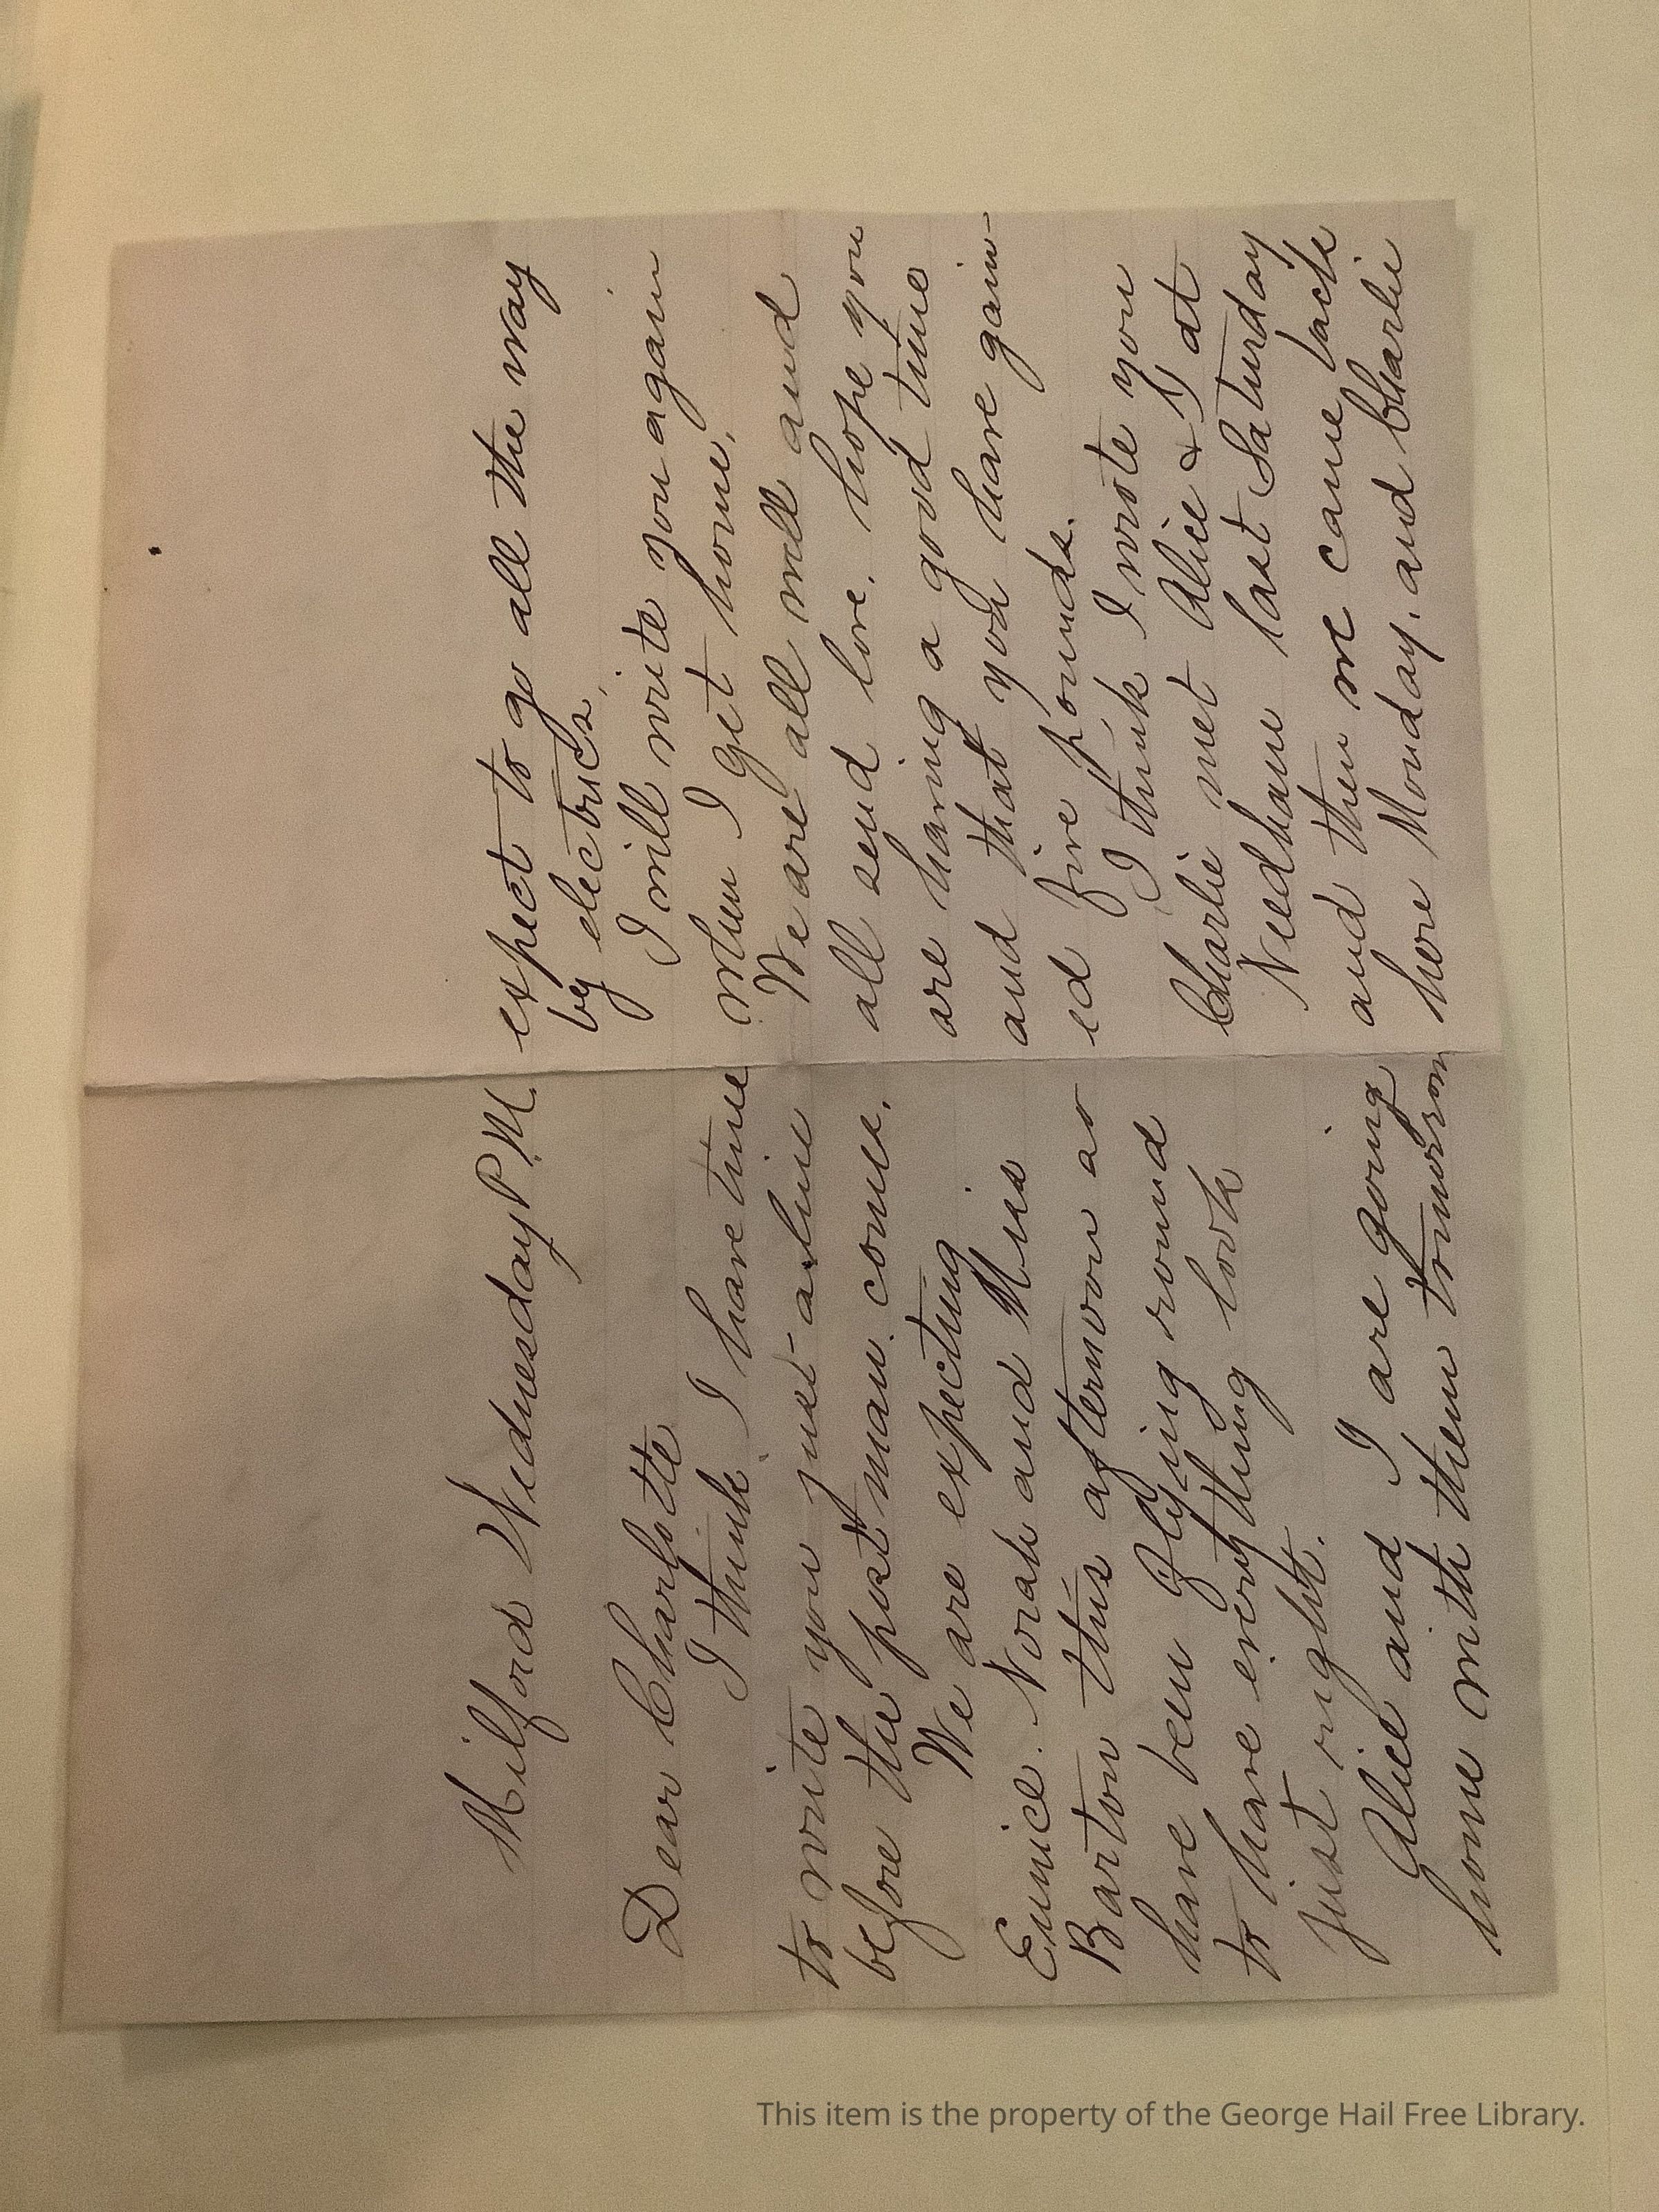 Milford Wednesday P.M.
Dear Charlotte
I think I have time
to write you just a line
before the postman comes.
We are expecting
Eunice. Norah and Miss
Barton this afternoon so
have been flying round
to have everything look
just right.
Alice and I are going
home with them tomorrow
expect to go all the way
by electrics,
I will write you again
when I get home.
We are all well and
all send love. hope you
are having a good time
and that you have gain-
ed five pounds.
I think I wrote you
Charlie met Alice & I at
Needham last Saturday
and then we came back
here Monday. and Charlie
This item is the property of the George Hail Free Library.